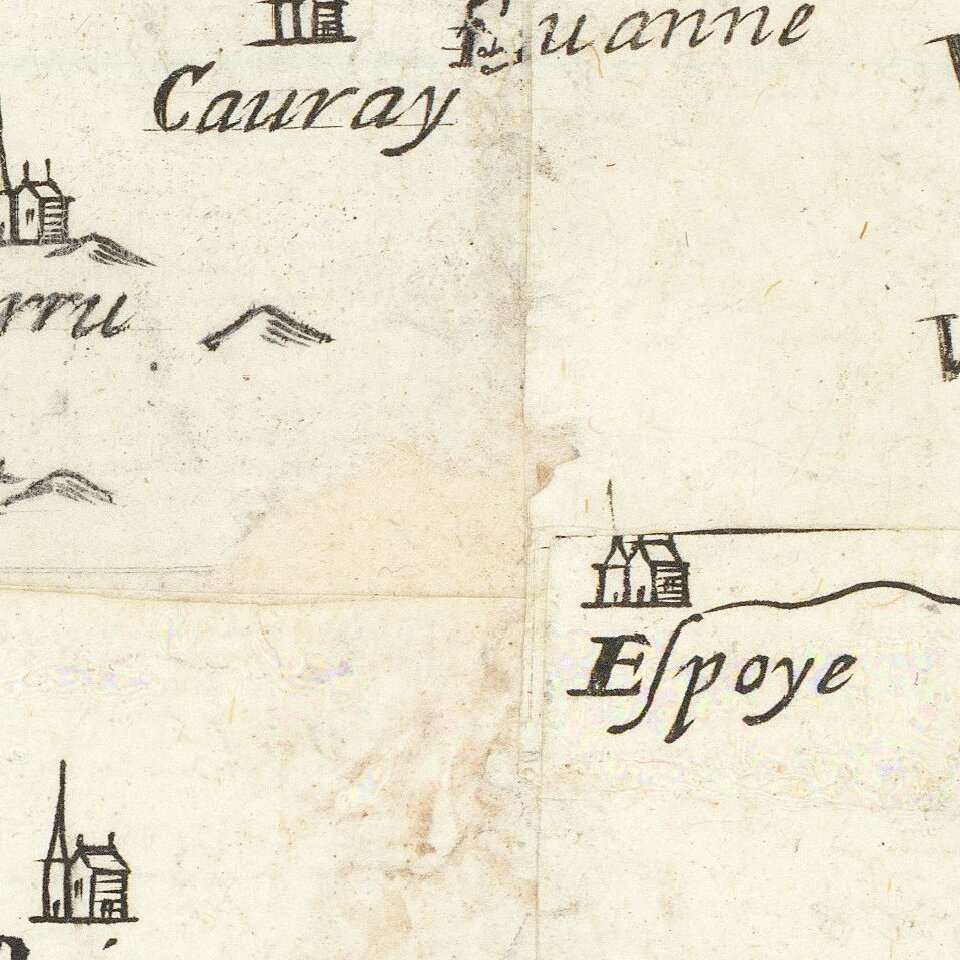 Euanne
Cauray
rru
Eſpoye